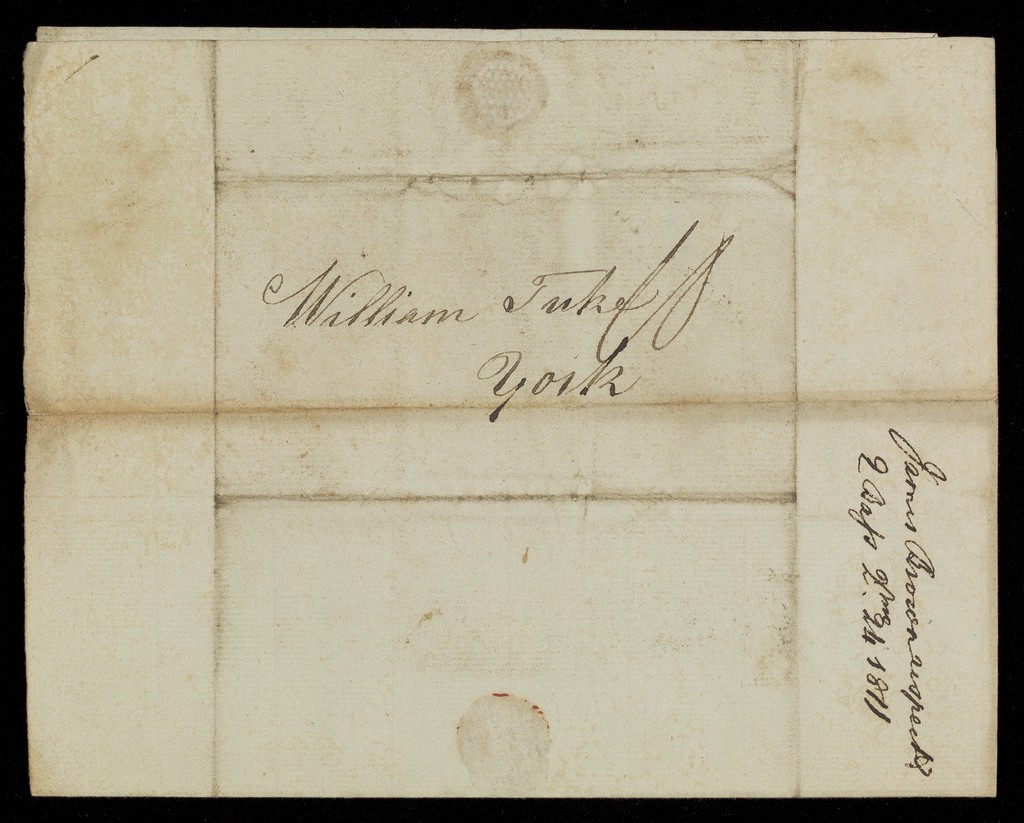 William Tuke
York
James Brown respectg
2 2mo 24 1811